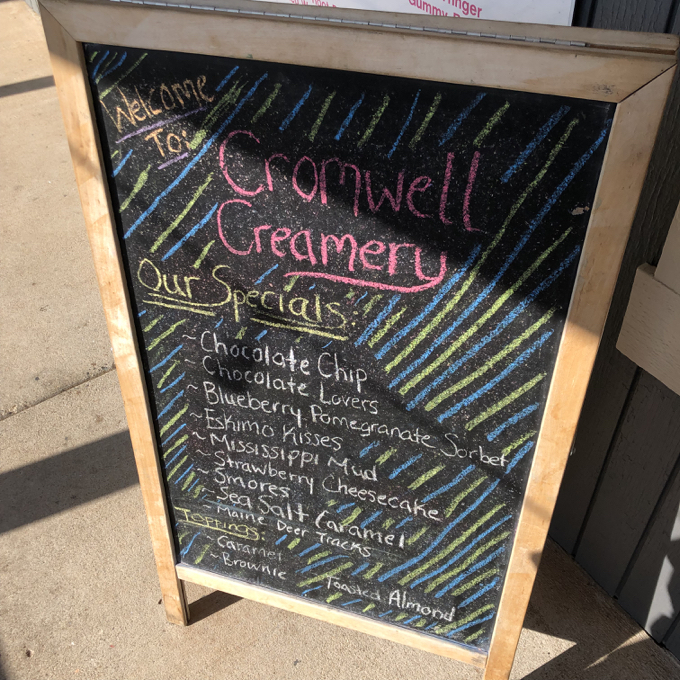 Gummy B
Welcome
To:
Cromwell
Creamery
Our Specials:
~ Chocolate Chip
~ Chocolate Lovers
~ Blueberry Pomegranate Sorbet
~ Eskimo Kisses
~ Mississippi Mud
~ Strawberry Cheesecake
~ Smores
~ Sea Salt Caramel
~ Maine Deer Tracks
Toppings:
~ Caramel
~ Brownie
Toasted Almond